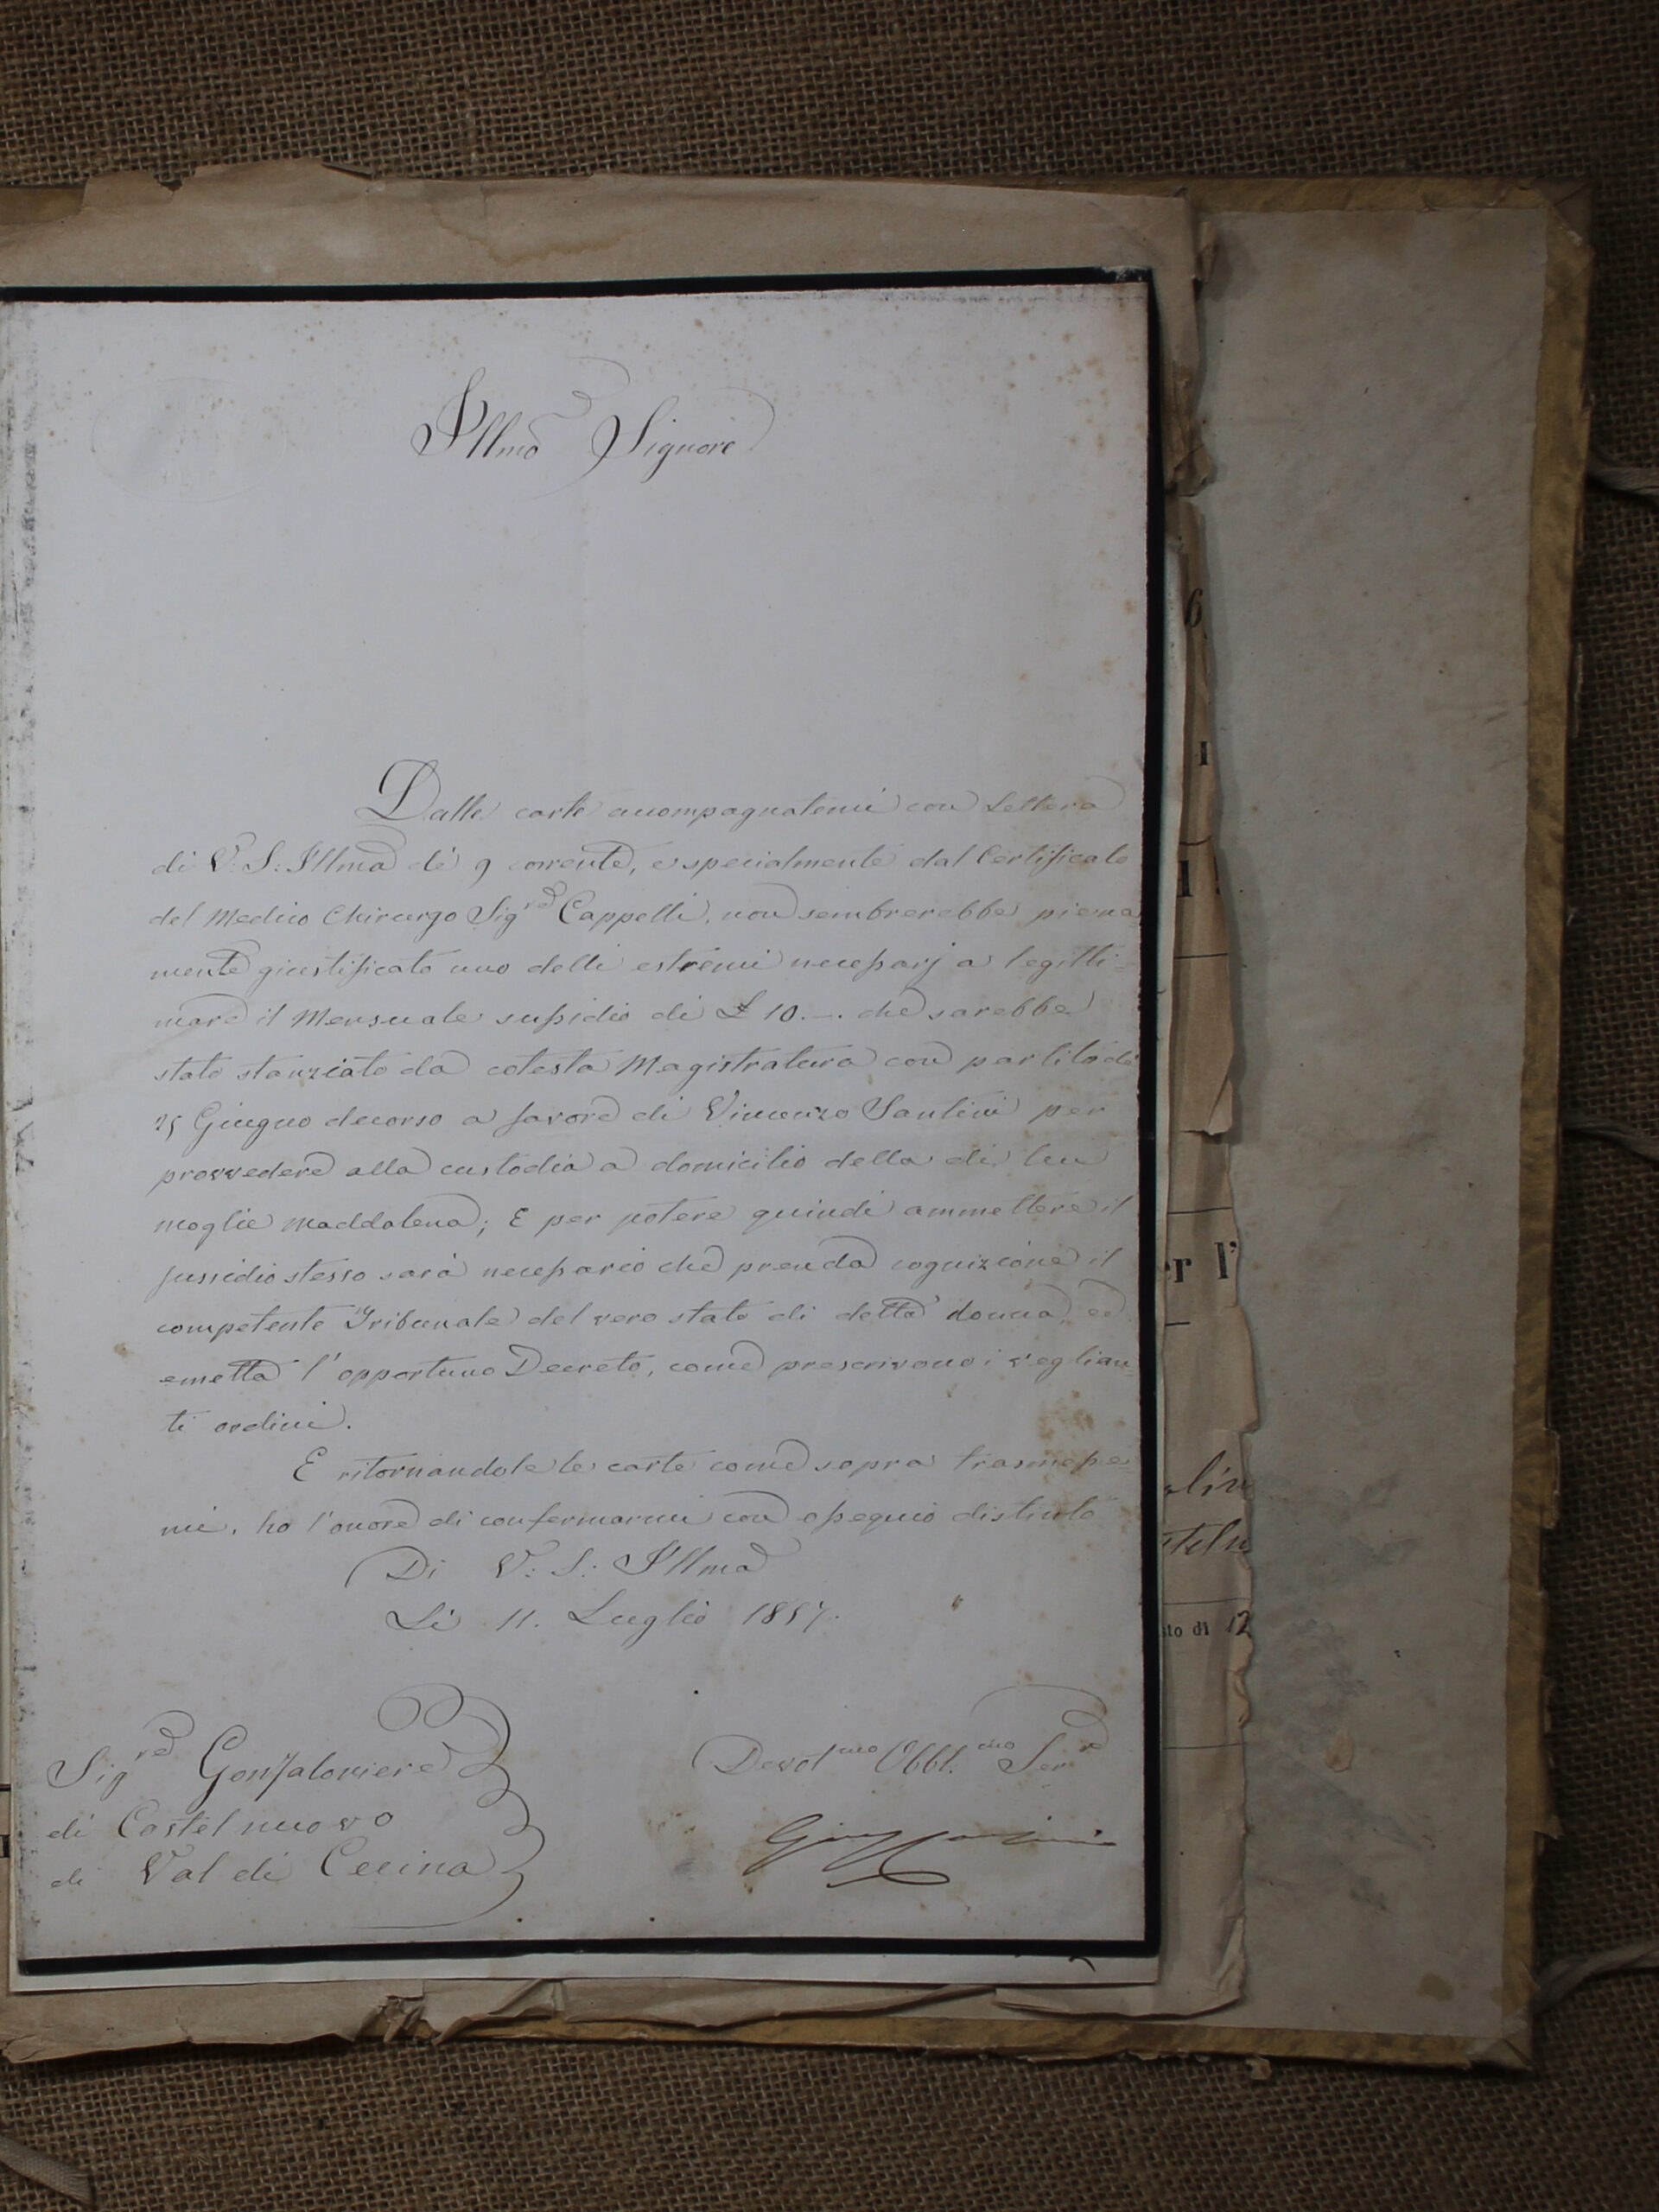 Illmo Signore
Dalle carte accompagnatemi con Lettera
di V: S: Illma de' 9 corrente, e specialmente dal Certificato
del Medico Chirurgo Sigre Cappelli, non sembrerebbe piena
mente giustificato uno delli estremi necessarj a legitti=
mare il Mensuale sussidio di £ 10.—. che sarebbe
stato stanziato da cotesta Magistratura con partito de'
25 Giugno decorso a favore di Vincenzo Santini per
provvedere alla custodia a domicilio della di lui
moglie Maddalena; E per potere quindi ammettere il
sussidio stesso sarà necessario che prenda cognizione il
competente Tribunale del vero stato di detta donna, ed
emetta l'opportuno Decreto, come prescrivono i veglian=
ti ordini.
E ritornandole le carte come sopra trasmesse=
mi, ho l'onore di confermarmi con ossequio distinto
Di V: S: Illma
Li 11. Luglio 1857.
Sigre Gonfaloniere
di Castelnuovo
di Val di Cecina
Devotmo Obblmo Serv
6
I
1
er l'
sto di 12